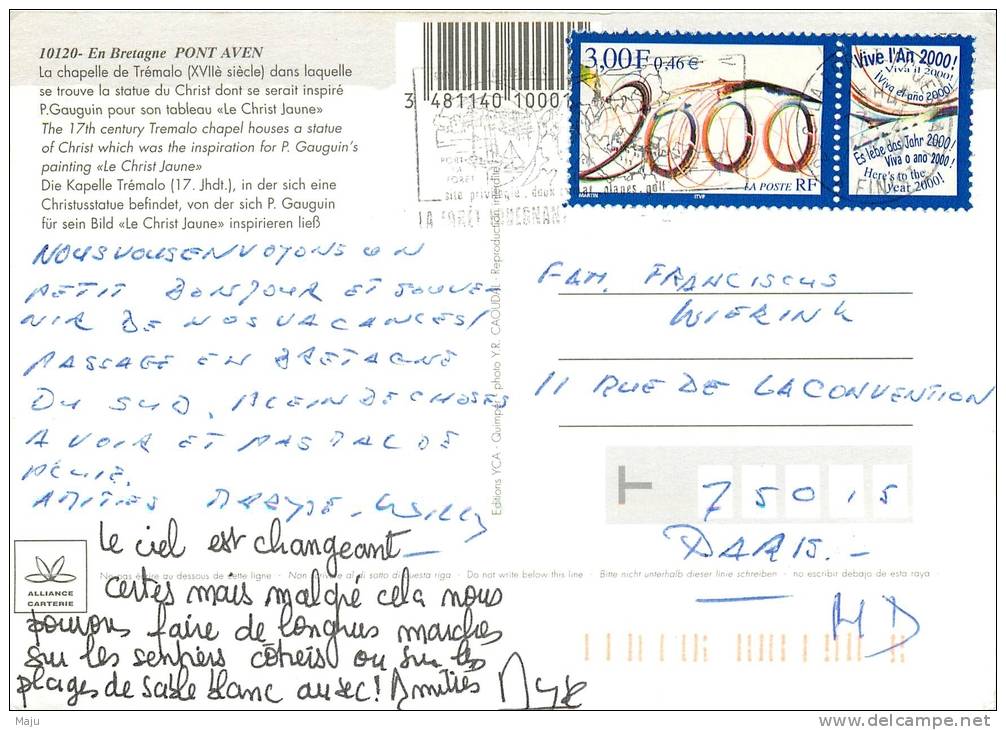 10120- En Bretagne PONT AVEN
La chapelle de Trémalo (XVIIè siècle) dans laquelle
se trouve la statue du Christ dont se serait inspiré
P.Gauguin pour son tableau «Le Christ Jaune»
The 17th century Tremalo chapel houses a statue
of Christ which was the inspiration for P. Gauguin's
painting «Le Christ Jaune»
Die Kapelle Trémalo (17. Jhdt.), in der sich eine
Christusstatue befindet, von der sich P. Gauguin
für sein Bild «Le Christ Jaune» inspirieren ließ
3 481140 10001
3,00F 0,46 €
2000
LA POSTE RF
MARTIN
ITVF
Vive l'An 2000!
Viva il 2000!
¡Viva el año 2000!
Es lebe das Jahr 2000!
Viva o ano 2000!
Here's to the
year 2000!
PORT-LA
FORET
LA FORÊT
NOUS VOUS ENVOYONS UN
PETIT BONJOUR ET SOUVE-
NIR DE NOS VACANCES/
PASSAGE EN BRETAGNE
DU SUD. PLEIN DE CHOSES
A VOIR ET PAS TAL DE
PLUIE.
AMITIES WILLY
Le ciel est changeant
certes mais malgré cela nous
pouvons faire de longues marches
sur les sentiers côtreis ou sur les
plages de sable blanc au sec! Amitiés
Editions YCA - Quimper - photo Y.R. CAOUDAL - Reproduction interdite
FAM. FRANCISCUS
WIERINK
11 RUE DE LA CONVENTION
T
75015
PARIS.-
MD
ALLIANCE
CARTERIE
Ne pas écrire au dessous de cette ligne - Non scrivere al di sotto di questa riga - Do not write below this line - Bitte nicht unterhalb dieser linie schreiben - no escribir debajo de esta raya
Maju
www.delcampe.net